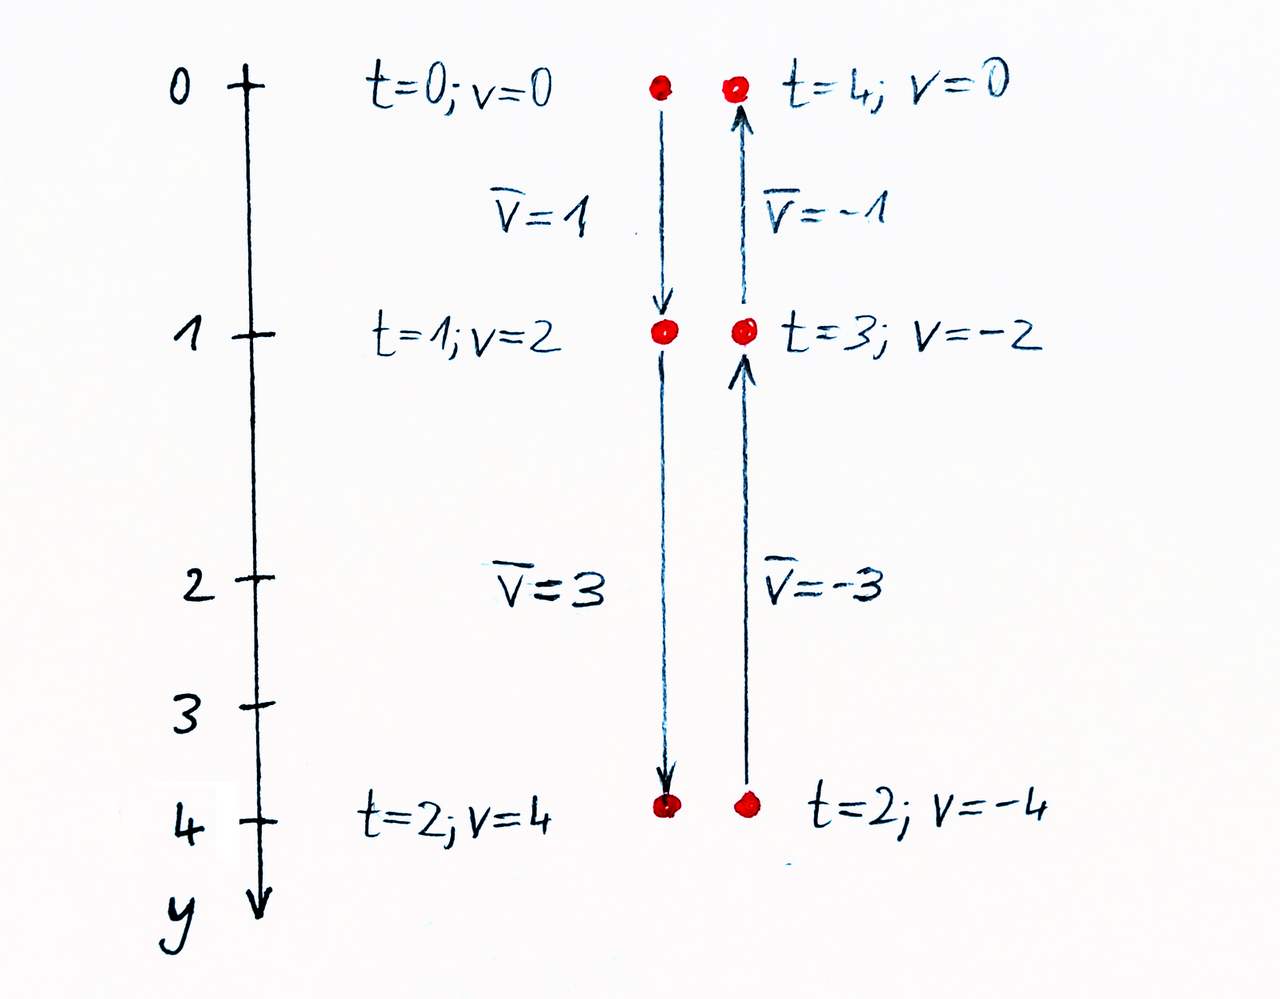 0 t=0; v=0 t=4; v=0
v̅=1 v̅=-1
1 t=1; v=2 t=3; v=-2
2 v̅=3 v̅=-3
3
4 t=2; v=4 t=2; v=-4
y